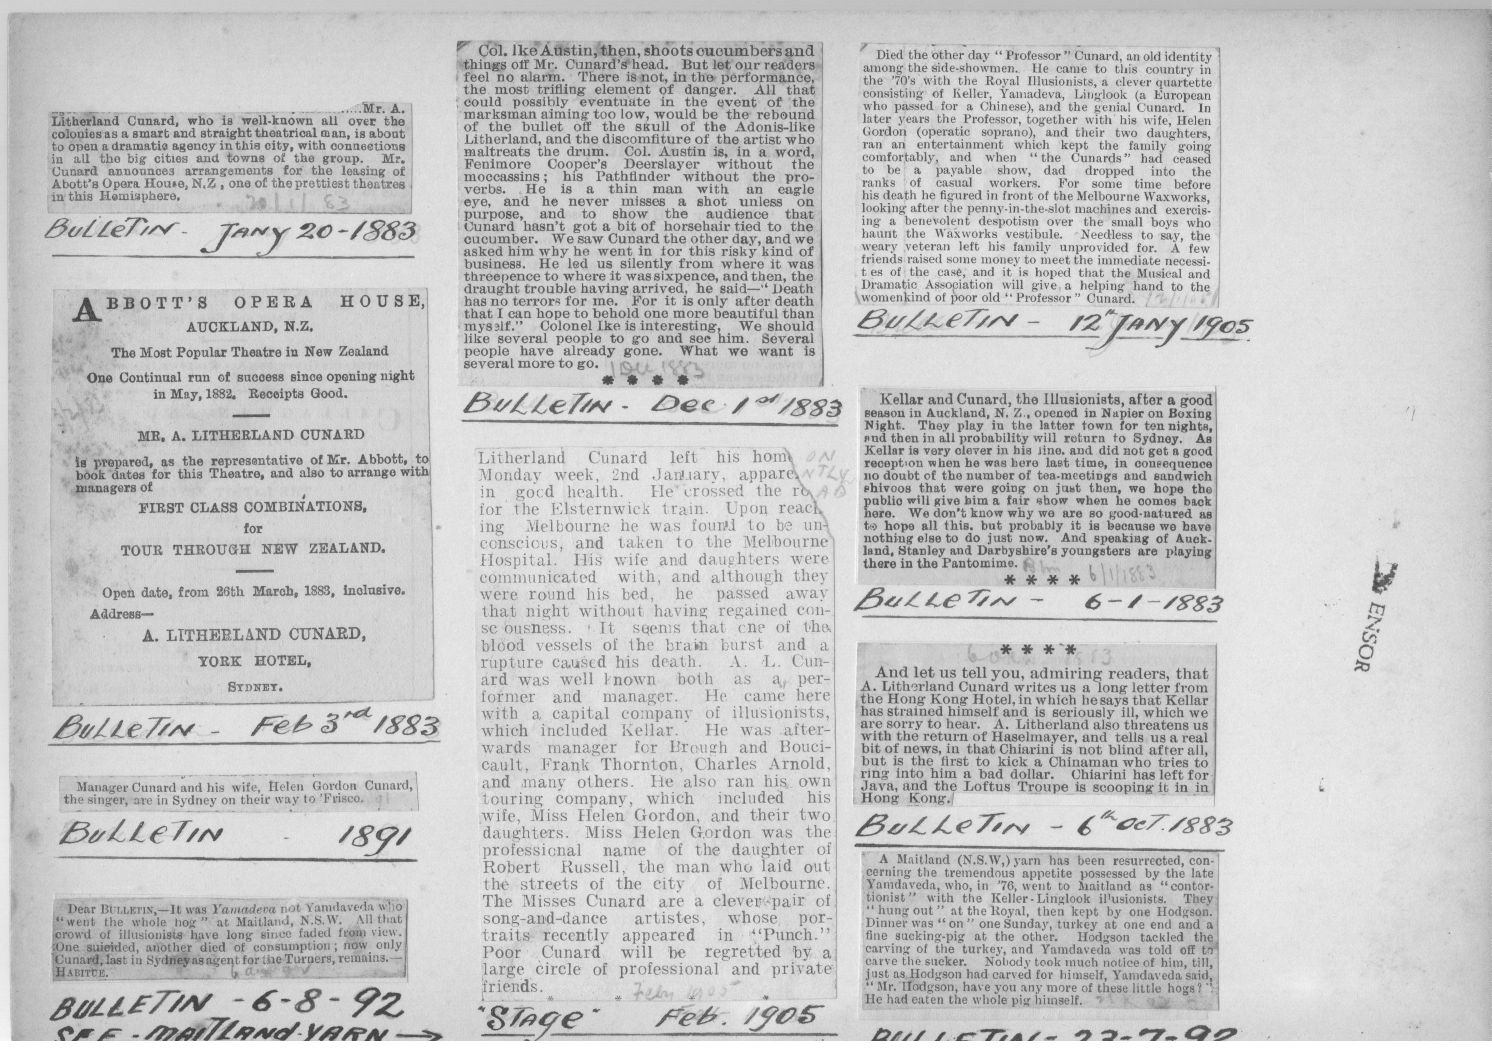 Mr. A.
Litherland Cunard, who is well-known all over the
colonies as a smart and straight theatrical man, is about
to open a dramatic agency in this city, with connections
in all the big cities and towns of the group. Mr.
Cunard announces arrangements for the leasing of
Abott's Opera House, N.Z., one of the prettiest theatres
in this Hemisphere.
BULLETIN - JANY 20 - 1883
ABBOTT'S OPERA HOUSE,
AUCKLAND, N.Z.
The Most Popular Theatre in New Zealand
One Continual run of success since opening night
in May, 1882. Receipts Good.
MR. A. LITHERLAND CUNARD
is prepared, as the representative of Mr. Abbott, to
book dates for this Theatre, and also to arrange with
managers of
FIRST CLASS COMBINATIONS,
for
TOUR THROUGH NEW ZEALAND.
Open date, from 26th March, 1883, inclusive.
Address—
A. LITHERLAND CUNARD,
YORK HOTEL,
SYDNEY.
BULLETIN - Feb 3rd 1883
Manager Cunard and his wife, Helen Gordon Cunard,
the singer, are in Sydney on their way to 'Frisco.
BULLETIN - 1891
Dear BULLETIN,—It was Yamadeva not Yamdaveda who
"went the whole hog" at Maitland, N.S.W. All that
crowd of illusionists have long since faded from view.
One suicided, another died of consumption; now only
Cunard, last in Sydney as agent for the Turners, remains.—
HABITUE.
BULLETIN - 6-8-92
SEE - MAITLAND YARN →
Col. Ike Austin, then, shoots cucumbers and
things off Mr. Cunard's head. But let our readers
feel no alarm. There is not, in the performance,
the most trifling element of danger. All that
could possibly eventuate in the event of the
marksman aiming too low, would be the rebound
of the bullet off the skull of the Adonis-like
Litherland, and the discomfiture of the artist who
maltreats the drum. Col. Austin is, in a word,
Fenimore Cooper's Deerslayer without the
moccassins; his Pathfinder without the pro-
verbs. He is a thin man with an eagle
eye, and he never misses a shot unless on
purpose, and to show the audience that
Cunard hasn't got a bit of horsehair tied to the
cucumber. We saw Cunard the other day, and we
asked him why he went in for this risky kind of
business. He led us silently from where it was
threepence to where it was sixpence, and then, the
draught trouble having arrived, he said—"Death
has no terrors for me. For it is only after death
that I can hope to behold one more beautiful than
myself." Colonel Ike is interesting, We should
like several people to go and see him. Several
people have already gone. What we want is
several more to go. 1 Dec 1883
* * * *
BULLETIN - Dec 1st 1883
Litherland Cunard left his home ON
Monday week, 2nd January, appare NTLY
in good health. He crossed the ro AD
for the Elsternwick train. Upon reach-
ing Melbourne he was found to be un-
conscious, and taken to the Melbourne
Hospital. His wife and daughters were
communicated with, and although they
were round his bed, he passed away
that night without having regained con-
sciousness. It seems that one of the
blood vessels of the brain burst and a
rupture caused his death. A. L. Cun-
ard was well known both as a per-
former and manager. He came here
with a capital company of illusionists,
which included Kellar. He was after-
wards manager for Brough and Bouci-
cault, Frank Thornton, Charles Arnold,
and many others. He also ran his own
touring company, which included his
wife, Miss Helen Gordon, and their two
daughters. Miss Helen Gordon was the
professional name of the daughter of
Robert Russell, the man who laid out
the streets of the city of Melbourne.
The Misses Cunard are a clever pair of
song-and-dance artistes, whose por-
traits recently appeared in "Punch."
Poor Cunard will be regretted by a
large circle of professional and private
friends. Feby 1905
"STAGE" Feb. 1905
Died the other day "Professor" Cunard, an old identity
among the side-showmen. He came to this country in
the '70's with the Royal Illusionists, a clever quartette
consisting of Keller, Yamadeva, Linglook (a European
who passed for a Chinese), and the genial Cunard. In
later years the Professor, together with his wife, Helen
Gordon (operatic soprano), and their two daughters,
ran an entertainment which kept the family going
comfortably, and when "the Cunards" had ceased
to be a payable show, dad dropped into the
ranks of casual workers. For some time before
his death he figured in front of the Melbourne Waxworks,
looking after the penny-in-the-slot machines and exercis-
ing a benevolent despotism over the small boys who
haunt the Waxworks vestibule. Needless to say, the
weary veteran left his family unprovided for. A few
friends raised some money to meet the immediate necessi-
ties of the case, and it is hoped that the Musical and
Dramatic Association will give a helping hand to the
womenkind of poor old "Professor" Cunard.
BULLETIN - 12th JANY 1905.
Kellar and Cunard, the Illusionists, after a good
season in Auckland, N. Z., opened in Napier on Boxing
Night. They play in the latter town for ten nights,
and then in all probability will return to Sydney. As
Kellar is very clever in his line, and did not get a good
reception when he was here last time, in consequence
no doubt of the number of tea-meetings and sandwich
shivoos that were going on just then, we hope the
public will give him a fair show when he comes back
here. We don't know why we are so good-natured as
to hope all this, but probably it is because we have
nothing else to do just now. And speaking of Auck-
land, Stanley and Darbyshire's youngsters are playing
there in the Pantomime.
* * * * 6/1/1883
BULLETIN - 6-1-1883
* * * *
And let us tell you, admiring readers, that
A. Litherland Cunard writes us a long letter from
the Hong Kong Hotel, in which he says that Kellar
has strained himself and is seriously ill, which we
are sorry to hear. A. Litherland also threatens us
with the return of Haselmayer, and tells us a real
bit of news, in that Chiarini is not blind after all,
but is the first to kick a Chinaman who tries to
ring into him a bad dollar. Chiarini has left for
Java, and the Loftus Troupe is scooping it in in
Hong Kong.
BULLETIN - 6th OCT. 1883
A Maitland (N.S.W,) yarn has been resurrected, con-
cerning the tremendous appetite possessed by the late
Yamdaveda, who, in '76, went to Maitland as "contor-
tionist" with the Keller-Linglook illusionists. They
"hung out" at the Royal, then kept by one Hodgson.
Dinner was "on" one Sunday, turkey at one end and a
fine sucking-pig at the other. Hodgson tackled the
carving of the turkey, and Yamdaveda was told off to
carve the sucker. Nobody took much notice of him, till,
just as Hodgson had carved for himself, Yamdaveda said,
"Mr. Hodgson, have you any more of these little hogs?"
He had eaten the whole pig himself.
BULLETIN - 23-7-92
ENSOR